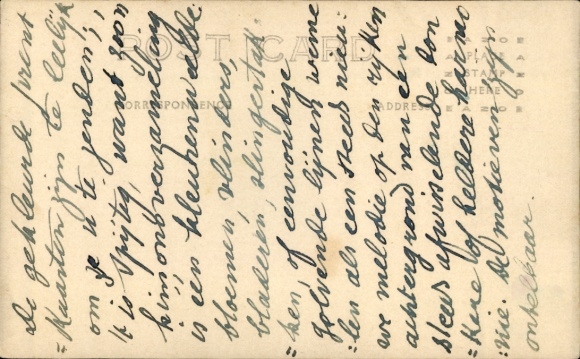 POST CARD
CORRESPONDENCE
ADDRESS
PLACE
STAMP
HERE
De gekleurde prent
=kaarten zijn te leelijk
om ze u te zenden;
't is spijtig, want zoo'n
kimonoverzameling
is een kleurenweelde.
bloemen, vlinders,
bladeren, slingertak=
=ken, of eenvoudige
golvende lijnen, weme
=len als een steeds nieu=
we melodie op den rijken
achtergrond van een
steeds afwisselende don
=kere of heldere harmo
nie. De motieven zijn
ontelbaar.